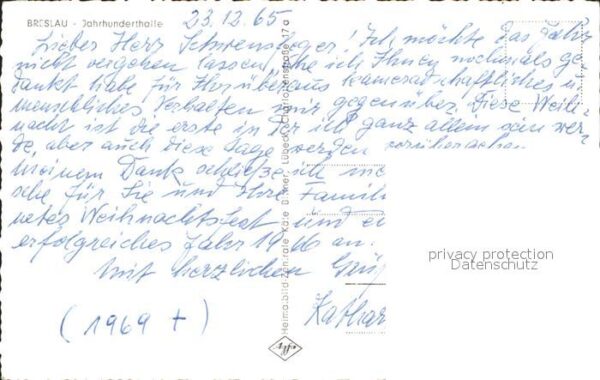 BRESLAU - Jahrhunderthalle
23.12.65
Lieber Herr Schwensfeger! Ich möchte das Jahr
nicht vergehen lassen, ehe ich Ihnen nochmals ge
dankt habe für Ihr überaus kameradschaftliches u.
menschliches Verhalten mir gegenüber. Diese Weih-
nacht ist die erste in der ich ganz allein sein wer-
de, aber auch diese Tage werden vorübergehen.
Meinem Dank schließe ich
sche für Sie und Ihre Famili
netes Weihnachtsfest und ei
erfolgreiches Jahr 1966 an.
Mit herzlichen Grüß
Kathar
(1969 +)
Heimatbild-Zentrale Käte Bittner, Lübeck, Charlottenstraße 17a
privacy protection
Datenschutz